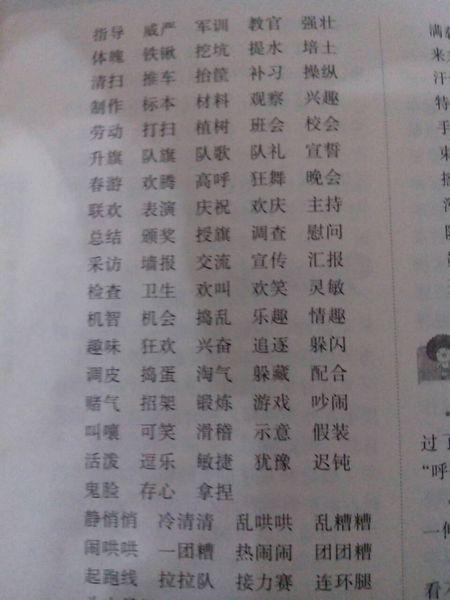 指导 威严 军训 教官 强壮
体魄 铁锹 挖坑 提水 培土
清扫 推车 抬筐 补习 操纵
制作 标本 材料 观察 兴趣
劳动 打扫 植树 班会 校会
升旗 队旗 队歌 队礼 宣誓
春游 欢腾 高呼 狂舞 晚会
联欢 表演 庆祝 欢庆 主持
总结 颁奖 授旗 调查 慰问
采访 墙报 交流 宣传 汇报
检查 卫生 欢叫 欢笑 灵敏
机智 机会 捣乱 乐趣 情趣
趣味 狂欢 兴奋 追逐 躲闪
调皮 捣蛋 淘气 躲藏 配合
赌气 招架 锻炼 游戏 吵闹
叫嚷 可笑 滑稽 示意 假装
活泼 逗乐 敏捷 犹豫 迟钝
鬼脸 存心 拿捏
静悄悄 冷清清 乱哄哄 乱糟糟
闹哄哄 一团糟 热闹闹 团团糟
起跑线 拉拉队 接力赛 连环腿
满
来
汗
特
手
束
过
“呼
一
看